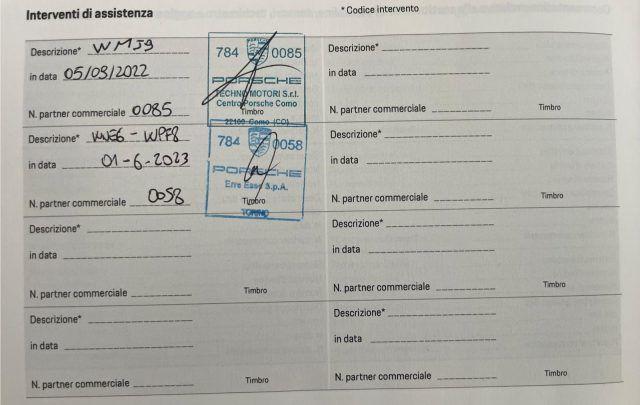 Interventi di assistenza
* Codice intervento
Descrizione* WMJ9
in data 05/09/2022
N. partner commerciale 0085
784 0085
PORSCHE
TECHNO MOTORI S.r.l.
Centro Porsche Como
Timbro
22100 Como (CO)
Descrizione* KNE6 - WPF8
in data 01-6-2023
N. partner commerciale 0058
784 0058
PORSCHE
Erre Esse S.p.A.
Timbro
TORINO
Descrizione*
in data
N. partner commerciale
Timbro
Descrizione*
in data
N. partner commerciale
Timbro
Descrizione*
in data
N. partner commerciale
Timbro
Descrizione*
in data
N. partner commerciale
Timbro
Descrizione*
in data
N. partner commerciale
Timbro
Descrizione*
in data
N. partner commerciale
Timbro